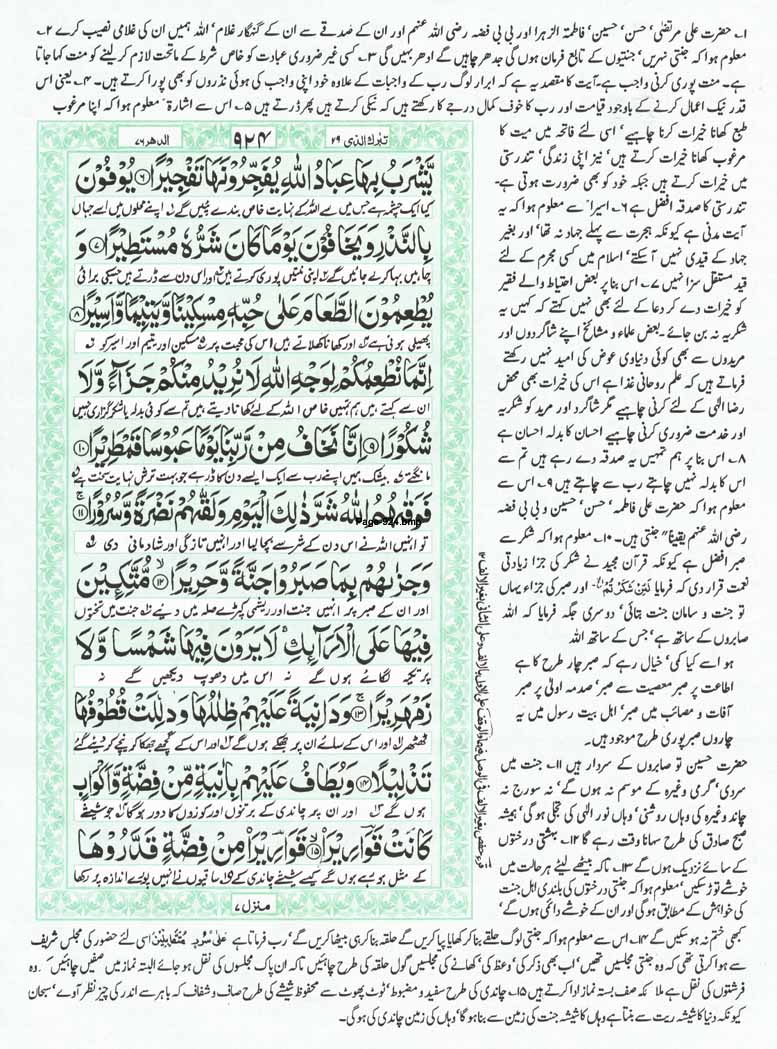 ۱۔ حضرت علی مرتضٰی' حسن' حسین' فاطمۃ الزہرا اور بی بی فضہ رضی اللہ عنہم اور ان کے صدقے سے ان کے گنہگار غلام' اللہ ہمیں ان کی غلامی نصیب کرے ۲۔
معلوم ہوا کہ جنتی نہریں' جنتیوں کے تابع فرمان ہوں گی جدھر چاہیں گے ادھر بہیں گی ۳۔ کسی غیر ضروری عبادت کو خاص شرط کے ماتحت لازم کر لینے کو منت کہا جاتا
ہے۔ منت پوری کرنی واجب ہے۔ آیت کا مقصد یہ ہے کہ ابرار لوگ رب کے واجبات کے علاوہ خود اپنی واجب کی ہوئی نذروں کو بھی پورا کرتے ہیں۔ ۴۔ یعنی اس
قدر نیک اعمال کرنے کے باوجود قیامت اور رب کا خوف کمال درجے کا رکھتے ہیں کہ نیکی کرتے ہیں پھر ڈرتے ہیں ۵۔ اس سے اشارۃً معلوم ہوا کہ اپنا مرغوب
طبع کھانا خیرات کرنا چاہیے' اسی لئے فاتحہ میں میت کا
مرغوب کھانا خیرات کرتے ہیں' نیز اپنی زندگی' تندرستی
میں خیرات کرتے ہیں جبکہ خود کو بھی ضرورت ہوتی ہے۔
تندرستی کا صدقہ افضل ہے ۶۔ اسیراً سے معلوم ہوا کہ یہ
آیت مدنی ہے کیونکہ ہجرت سے پہلے جہاد نہ تھا' اور بغیر
جہاد کے قیدی نہیں آ سکتے' اسلام میں کسی مجرم کے لئے
قید مستقل سزا نہیں ۷۔ اس بنا پر بعض احتیاط والے فقیر
کو خیرات دے کر دعا کے لئے بھی نہیں کہتے کہ کہیں یہ
شکریہ نہ بن جائے۔ بعض علماء و مشائخ اپنے شاگردوں اور
مریدوں سے بھی کوئی دنیاوی عوض کی امید نہیں رکھتے
فرماتے ہیں کہ علم روحانی غذا ہے اس کی خیرات بھی محض
رضا الٰہی کے لئے کرنی چاہیے مگر شاگرد اور مرید کو شکریہ
اور خدمت ضروری کرنی چاہیے احسان کا بدلہ احسان ہے
۸۔ اس بنا پر ہم تمہیں یہ صدقہ دے رہے ہیں تم سے
اس کا بدلہ نہیں چاہتے رب سے چاہتے ہیں ۹۔ اس سے
معلوم ہوا کہ حضرت علی فاطمہ' حسن' حسین و بی بی فضہ
رضی اللہ عنہم یقیناً جنتی ہیں۔ ۱۰۔ معلوم ہوا کہ شکر سے
صبر افضل ہے کیونکہ قرآن مجید نے شکر کی جزا زیادتی
نعمت قرار دی کہ فرمایا لَئِنْ شَكَرْتُمْ الخ اور صبر کی جزاء یہاں
تو جنت و سامان جنت بتائی' دوسری جگہ فرمایا کہ اللہ
صابروں کے ساتھ ہے' جس کے ساتھ اللہ
ہو اسے کیا کمی' خیال رہے کہ صبر چار طرح کا ہے
اطاعت پر صبر معصیت سے صبر' صدمہ اولیٰ پر صبر
آفات و مصائب میں صبر' اہل بیت رسول میں یہ
چاروں صبر پوری طرح موجود ہیں۔
حضرت حسین تو صابروں کے سردار ہیں ۱۱۔ جنت میں
سردی' گرمی وغیرہ کے موسم نہ ہوں گے' نہ سورج نہ
چاند وغیرہ کی وہاں روشنی' وہاں نور الٰہی کی تجلی ہو گی' ہمیشہ
صبح صادق کی طرح سہانا وقت رہے گا ۱۲۔ بہشتی درختوں
کے سائے نزدیک ہوں گے ۱۳۔ تاکہ بیٹھے لیٹے ہر حالت میں
خوشے توڑ سکیں' معلوم ہوا کہ جنتی درختوں کی بلندی اہل جنت
کی خواہش کے مطابق ہو گی اور ان کے خوشے دائمی ہوں گے'
تبٰرك الذی ۲۹
۹۲۴
الدھر ۷۶
يَّشْرَبُ بِهَا عِبَادُ اللّٰهِ يُفَجِّرُوْنَهَا تَفْجِيْرًا ۶ يُوْفُوْنَ
کیا ایک چشمہ ہے جس میں سے اللہ کے نہایت خاص بندے پئیں گے اپنے محلوں میں اسے جہاں
بِالنَّذْرِ وَيَخَافُوْنَ يَوْمًا كَانَ شَرُّهٗ مُسْتَطِيْرًا ۷ وَ
چاہیں بہا کر لے جائیں گے اپنی منتیں پوری کرتے ہیں اور اس دن سے ڈرتے ہیں جس کی برائی
يُطْعِمُوْنَ الطَّعَامَ عَلٰى حُبِّهٖ مِسْكِيْنًا وَّيَتِيْمًا وَّاَسِيْرًا ۸
پھیلی ہوئی ہے اور کھانا کھلاتے ہیں اس کی محبت پر مسکین اور یتیم اور اسیر کو
اِنَّمَا نُطْعِمُكُمْ لِوَجْهِ اللّٰهِ لَا نُرِيْدُ مِنْكُمْ جَزَآءً وَّلَا
ان سے کہتے ہیں ہم تمہیں خاص اللہ کے لئے کھانا دیتے ہیں تم سے کوئی بدلہ یا شکر گزاری نہیں
شُكُوْرًا ۹ اِنَّا نَخَافُ مِنْ رَّبِّنَا يَوْمًا عَبُوْسًا قَمْطَرِيْرًا ۱۰
مانگتے بیشک ہمیں اپنے رب سے ایک ایسے دن کا ڈر ہے جو بہت ترش نہایت سخت ہے
فَوَقٰىهُمُ اللّٰهُ شَرَّ ذٰلِكَ الْيَوْمِ وَلَقّٰىهُمْ نَضْرَةً وَّسُرُوْرًا ۱۱
Page-924.bmp
تو انہیں اللہ نے اس دن کے شر سے بچا لیا اور انہیں تازگی اور شادمانی دی
وَجَزٰىهُمْ بِمَا صَبَرُوْا جَنَّةً وَّحَرِيْرًا ۱۲ مُّتَّكِـِٕيْنَ
اور ان کے صبر پر انہیں جنت اور ریشمی کپڑے صلہ میں دیئے جنت میں تختوں
فِيْهَا عَلَى الْاَرَآئِكِ لَا يَرَوْنَ فِيْهَا شَمْسًا وَّلَا
پر تکیہ لگائے ہوں گے نہ اس میں دھوپ دیکھیں گے نہ
زَمْهَرِيْرًا ۱۳ وَدَانِيَةً عَلَيْهِمْ ظِلٰلُهَا وَذُلِّلَتْ قُطُوْفُهَا
ٹھٹھر اور اس کے سائے ان پر جھکے ہوں گے اور اس کے گچھے جھکا کر نیچے کر دیئے گئے
تَذْلِيْلًا ۱۴ وَيُطَافُ عَلَيْهِمْ بِاٰنِيَةٍ مِّنْ فِضَّةٍ وَّاَكْوَابٍ
ہوں گے اور ان پر چاندی کے برتنوں اور کوزوں کا دور ہو گا جو شیشے
كَانَتْ قَوَارِيْرَا ۱۵ قَوَارِيْرَا مِنْ فِضَّةٍ قَدَّرُوْهَا
کے مثل ہو رہے ہوں گے کیسے شیشے چاندی کے ساقیوں نے انہیں پورے اندازہ پر رکھا
منزل ۷
کبھی ختم نہ ہو سکیں گے ۱۴۔ اس سے معلوم ہوا کہ جنتی لوگ حلقے بنا کر کھایا پیا کریں گے حلقہ بنا کر ہی بیٹھا کریں گے' رب فرماتا ہے عَلٰى سُرُرٍ مُّتَقٰبِلِيْنَ اسی لئے حضور کی مجلس شریف
سے ہوا کرتی تھی کہ وہ جنتی مجلسیں تھیں' اب بھی ذکر کی' وعظ کی' کھانے کی مجلسیں گول حلقہ کی طرح چاہئیں تاکہ ان پاک مجلسوں کی نقل ہو جائے البتہ نماز میں صفیں چاہئیں کہ وہ
فرشتوں کی نقل ہے ملائکہ صف بستہ نماز ادا کرتے ہیں ۱۵۔ چاندی کی طرح سفید و مضبوط' ٹوٹ پھوٹ سے محفوظ شیشے کی طرح صاف و شفاف کہ باہر سے اندر کی چیز نظر آوے' سبحان
کیونکہ دنیا کا شیشہ ریت سے بنتا ہے وہاں کا شیشہ جنت کی زمین سے بنا ہو گا' وہاں کی زمین چاندی کی ہو گی۔